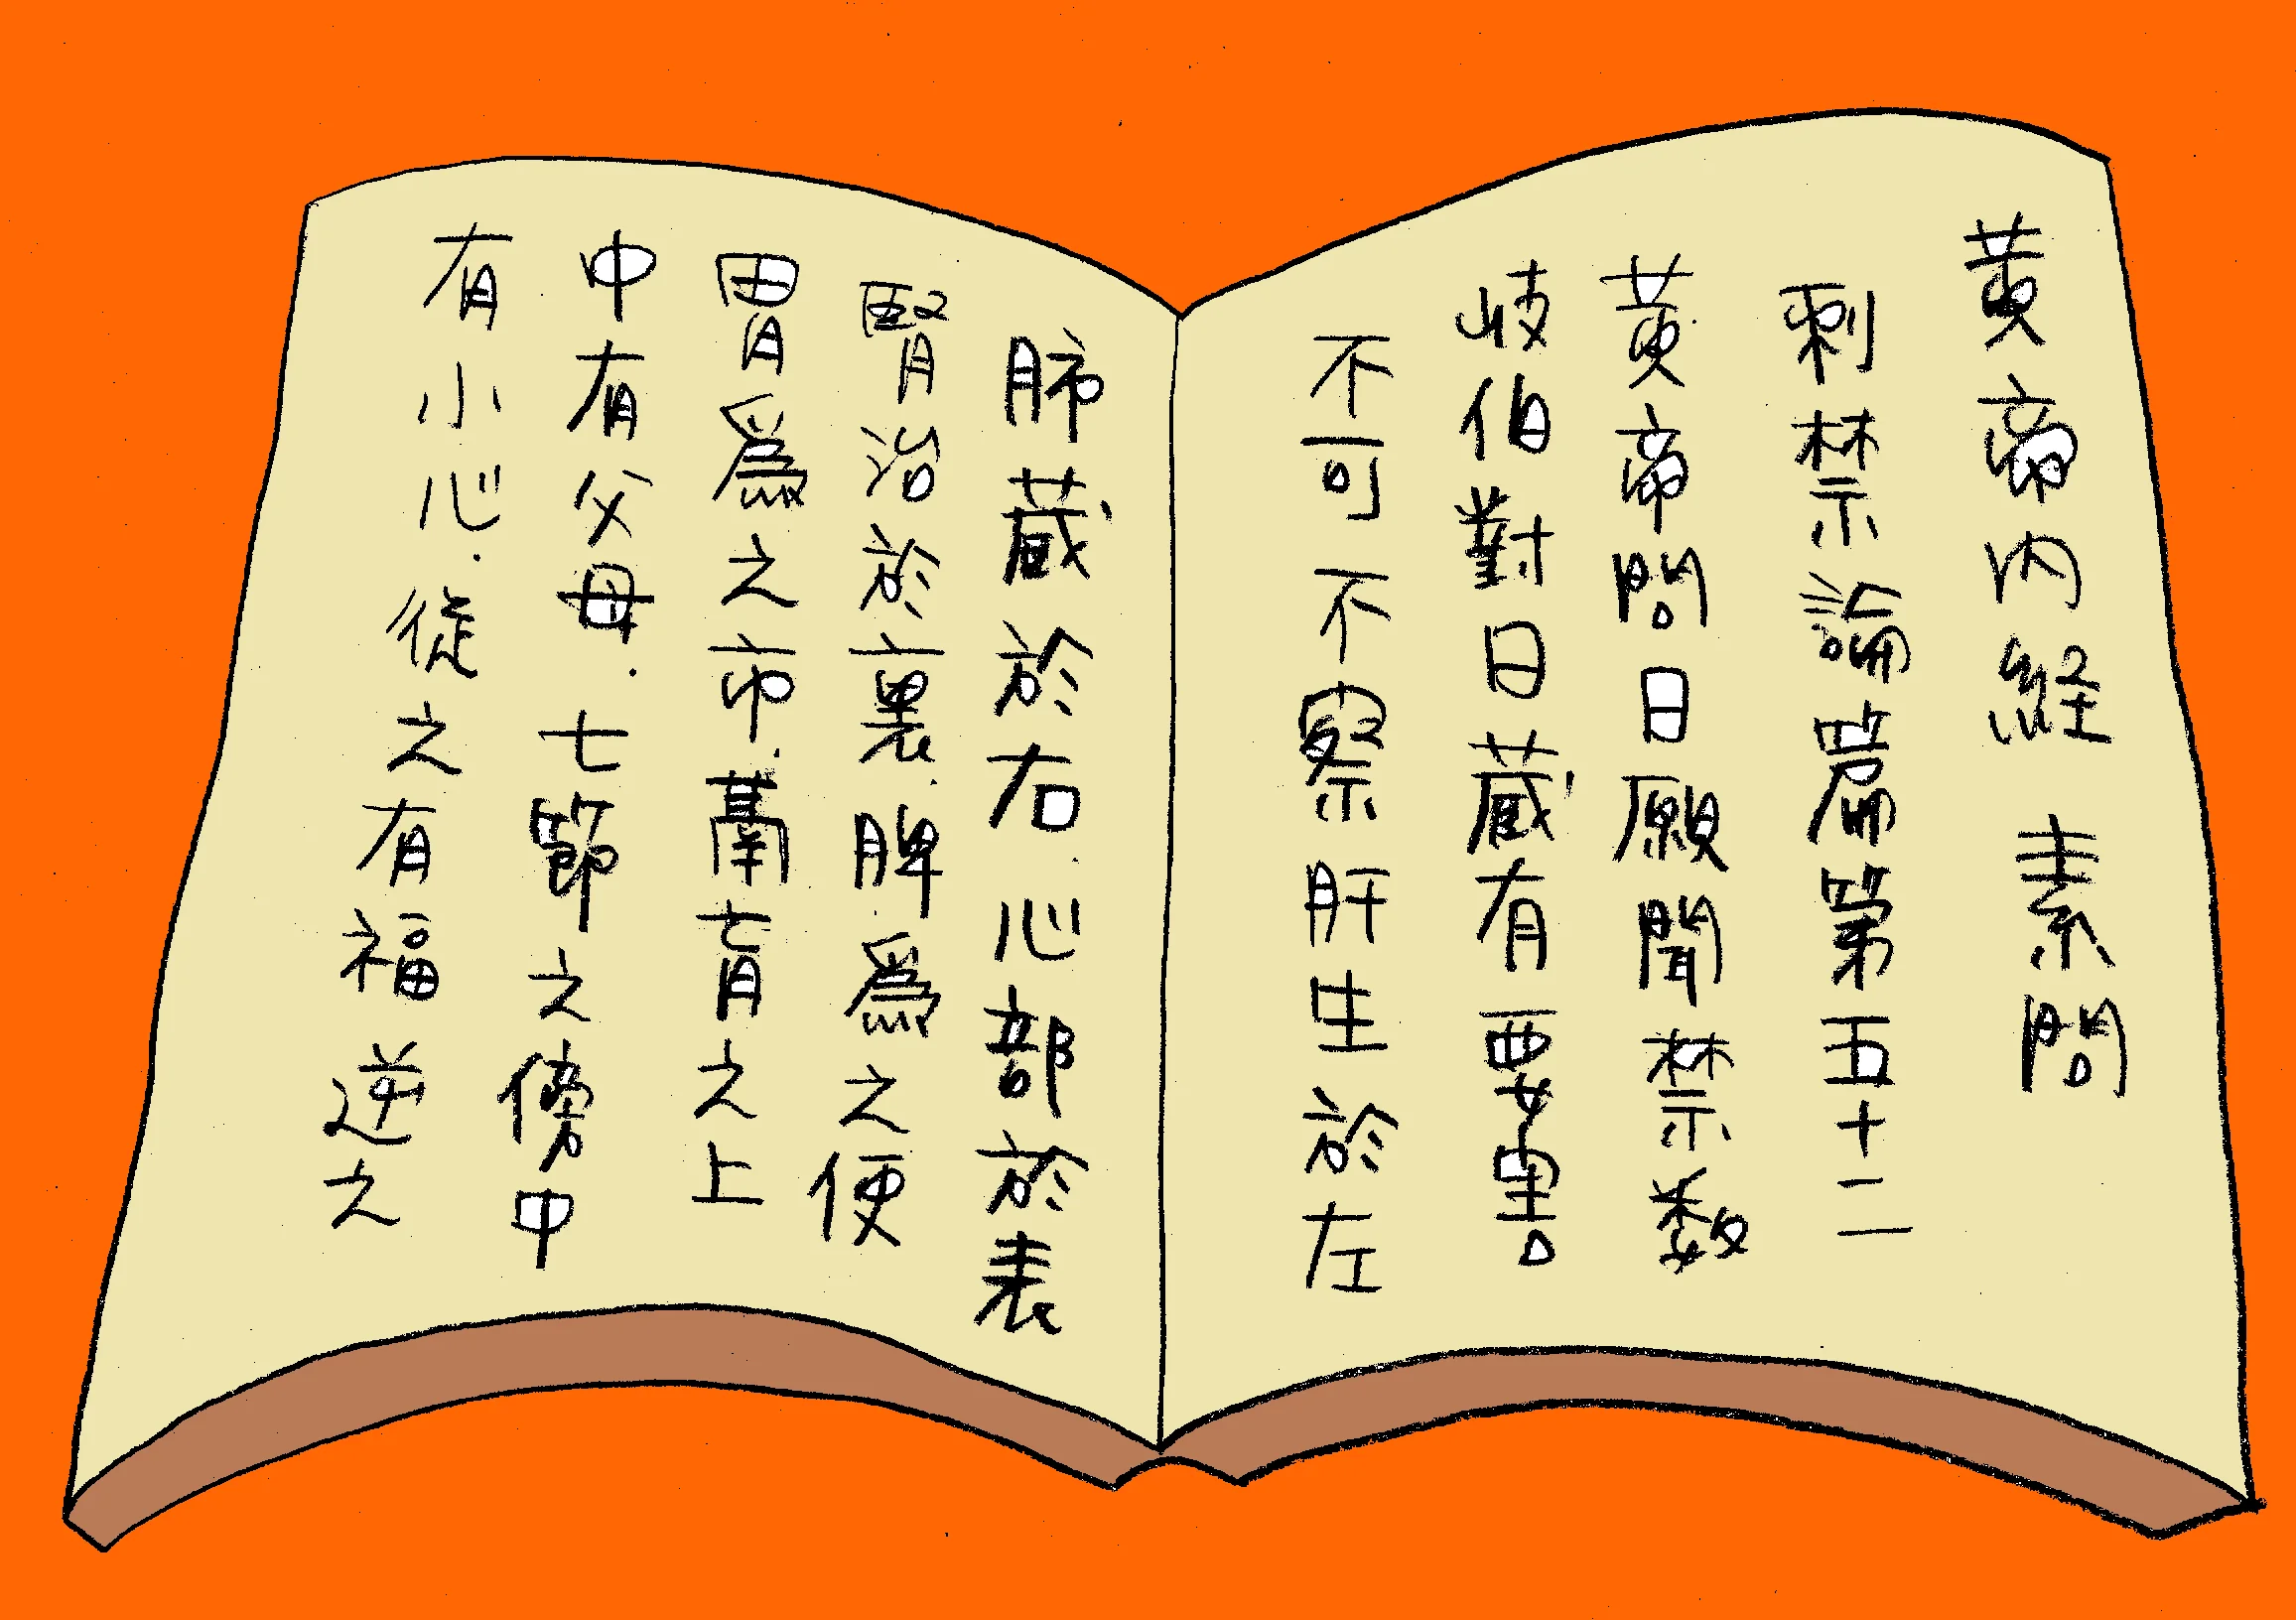 黄帝内経 素問
刺禁論篇第五十二
黄帝問曰願聞禁数
岐伯對曰蔵有要害
不可不察肝生於左
肺蔵於右.心部於表
腎治於裏.脾爲之使
胃爲之市.鬲肓之上
中有父母.七節之傍中
有小心.従之有福逆之